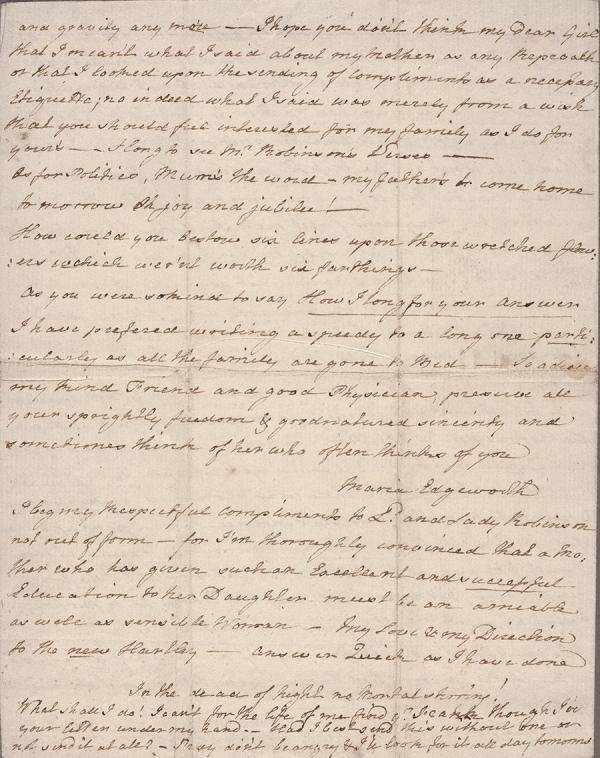 and gravity any more — I hope you don't think my dear Girl
that I meant what I said about my Mother as any Reproach
or that I looked upon the sending of compliments as a necessary
Etiquette; no indeed what I said was merely from a wish
that you should feel interested for my family as I do for
yours — I long to see Mr. Robinson's Verses —
As for Politics, Mum's the word — my father's to come home
tomorrow Oh joy and jubilee! —
How could you bestow six lines upon those wretched flow:
:ers which wer'nt worth six farthings —
As you were so kind to say How I long for your answer
I have prefered writing a speedy to a long one parti:
:cularly as all the family are gone to Bed — So adieu
my kind Friend and good Physician, preserve all
your sprightly freedom & goodnatured sincerity and
sometimes think of her who often thinks of you
Maria Edgeworth
I beg my Respectful compliments to Sr. and Lady Robinson
not out of form — for I'm thoroughly convinced that a Mo:
ther who has given such an Excellent and successful
Education to her Daughter must be an amiable
as well as sensible Woman — My Love & my Direction
to the new Hartley — answer Quick as I have done
In the dead of night no mortal stirring!
What shall I do! I can't for the life of me find yr. though I've
your letter under my hand — Had I best send this without one or
not send it at all? — Pray don't be angry & I'll look for it all day tomorrow